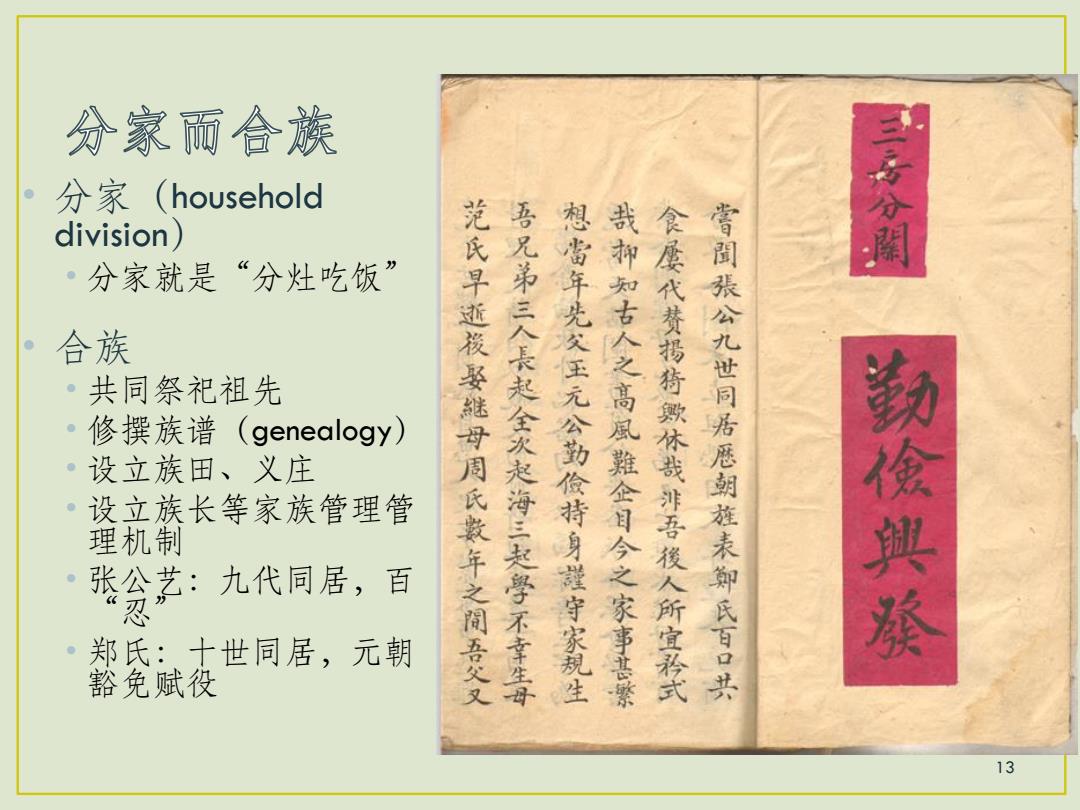 分家而合族
• 分家（household
division）
• 分家就是“分灶吃饭”
• 合族
• 共同祭祀祖先
• 修撰族谱（genealogy）
• 设立族田、义庄
• 设立族长等家族管理管
理机制
• 张公艺：九代同居，百
“忍”
• 郑氏：十世同居，元朝
豁免赋役
三房分關
勤儉興發
嘗聞張公九世同居歷朝旌表鄭氏百口共
食屢代贊揚猗歟休哉洵吾後人所宜矜式
哉抑知古人之高風難企目今之家事甚繁
想當年先父王元公勤儉持身謹守家規生
吾兄弟三人長起全次起海三起學不幸生母
范氏早逝後娶継母周氏數年之間吾父又
13